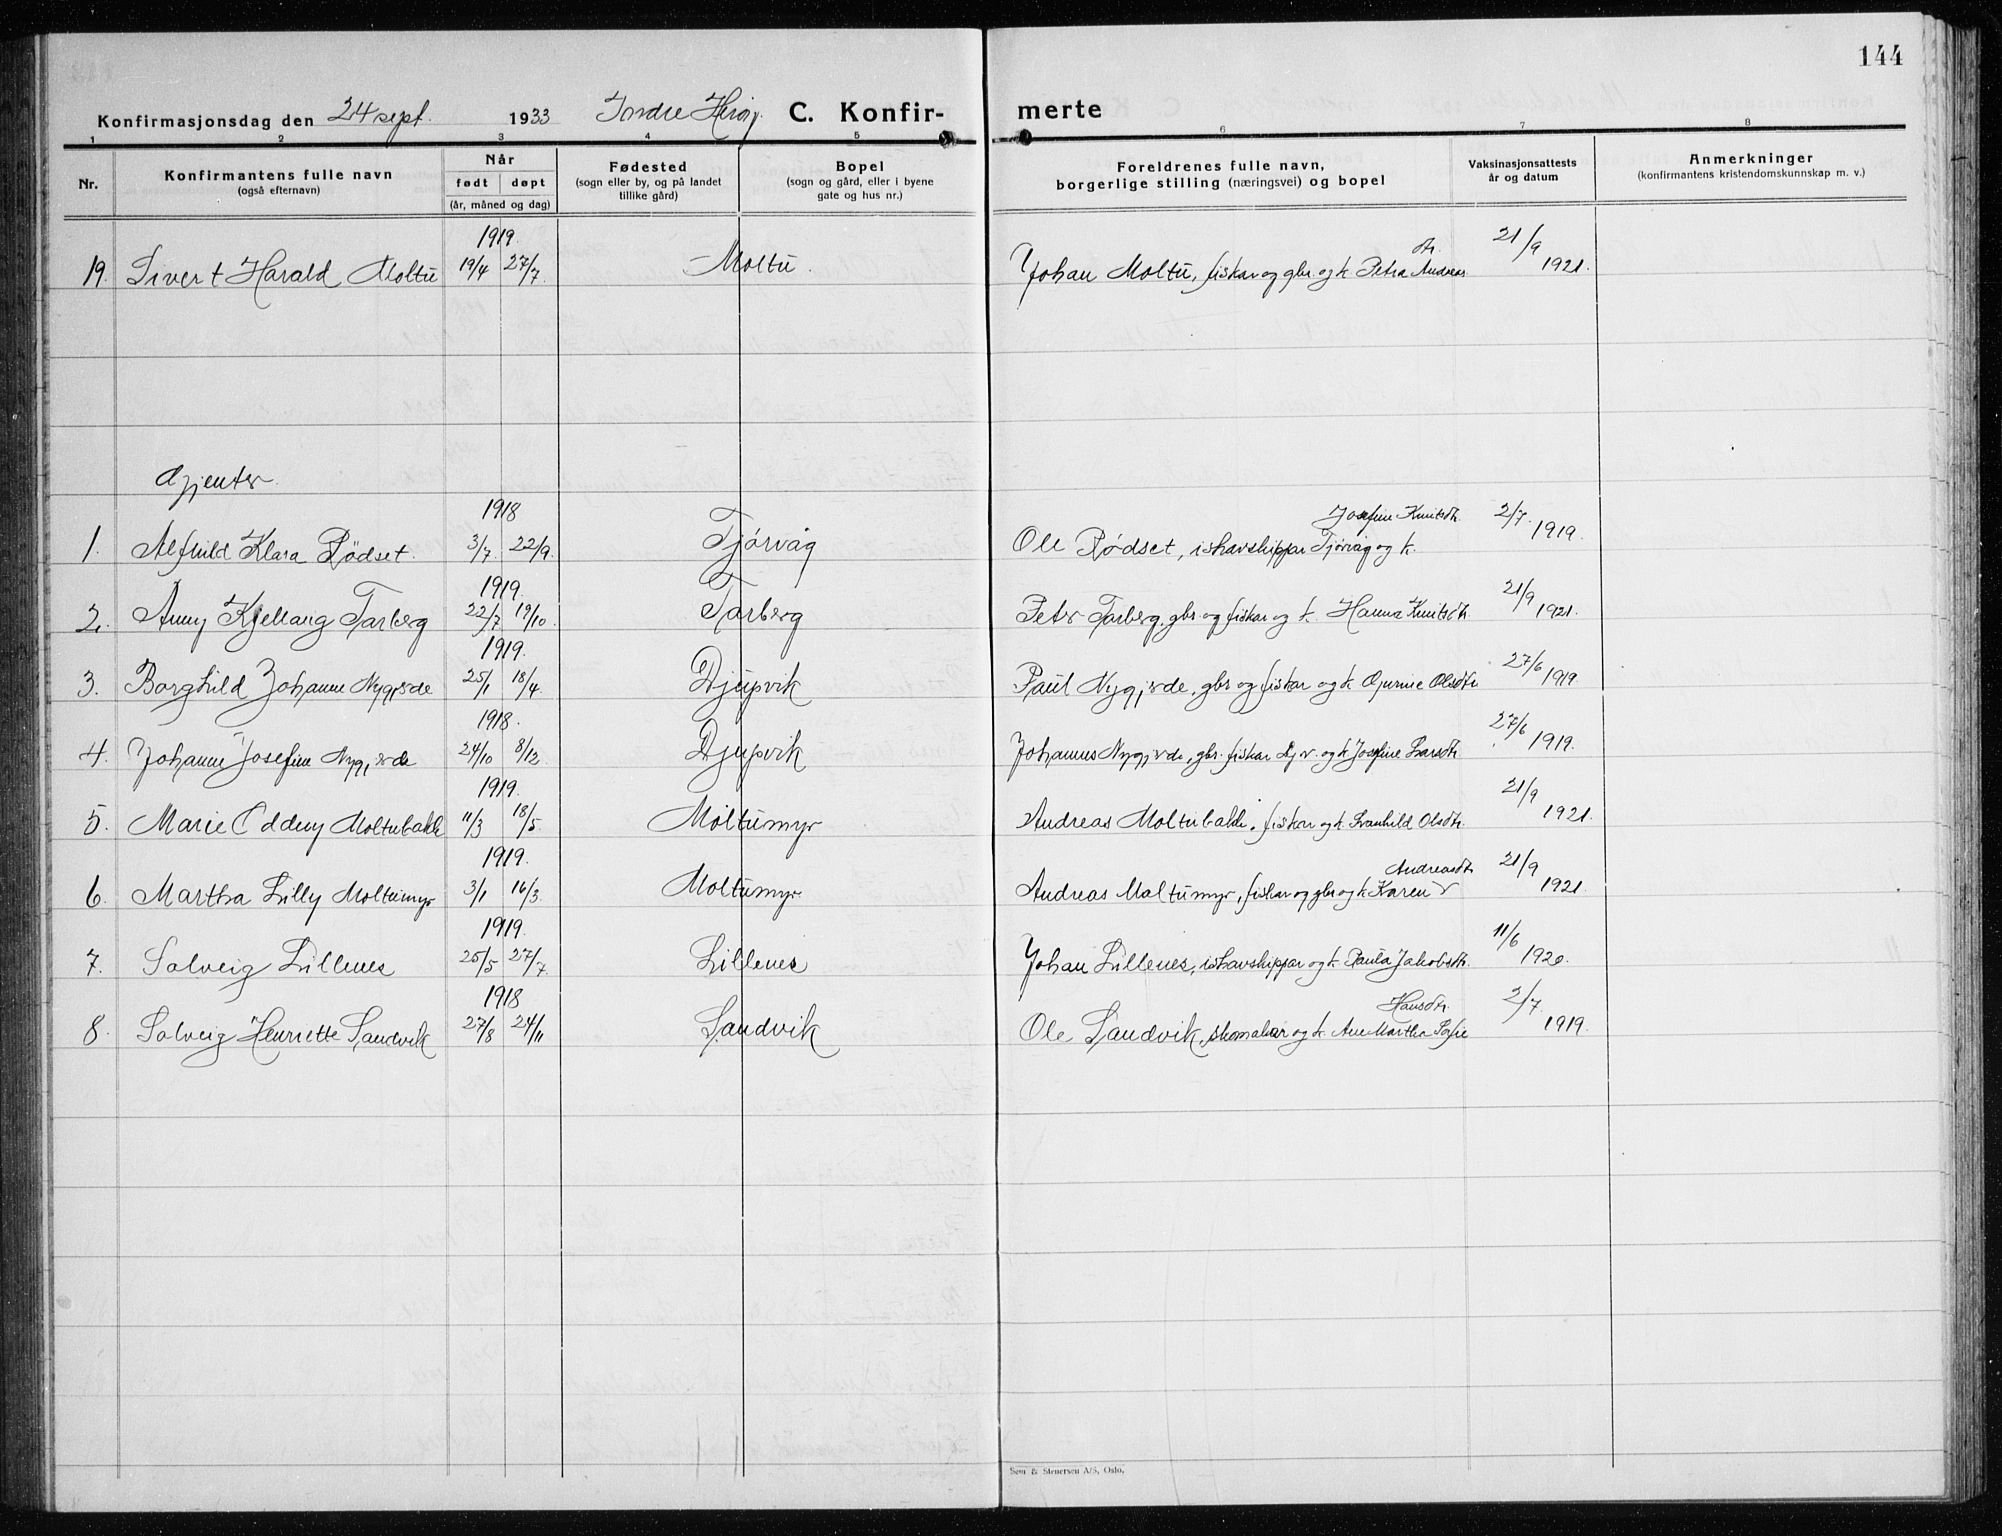 144
Konfirmasjonsdag den 24 sept. 1933 Indre Herøy. C. Konfirmerte
1 2 3 4 5 6 7 8
Nr. Konfirmantens fulle navn (også efternavn) Når født døpt (år, måned og dag) Fødested (sogn eller by, og på landet tillike gård) Bopel (sogn og gård, eller i byene gate og hus nr.) Foreldrenes fulle navn, borgerlige stilling (næringsvei) og bopel Vaksinasjonsattests år og datum Anmerkninger (konfirmantens kristendomskunnskap m. v.)
1919.
19. Sivert Harald Moltu 19/4 27/7. Moltu. Johan Moltu, fiskar og gbr. og k. Petra Andreas dtr. 21/9 1921.
Gjenter.
1918
1. Alfhild Klara Rödset. 3/7. 22/9. Tjørvåg Ole Rødset, ishavskippar Tjørvåg og k. Josefine Knutsdtr. 2/7. 1919.
1919.
2. Anny Kjellaug Tarberg 22/7 19/10. Tarberg Peter Tarberg, gbr. og fiskar og k. Hanna Knutsdtr. 21/9 1921.
1919.
3. Borghild Johanne Nygjerde 25/1 18/4. Djupvik Paul Nygjerde, gbr og fiskar og k. Olsdtr. 27/6 1919
1918.
4. Johanne Josefine Nygjerde 24/10 8/12. Djupvik Johannes Nygjerde, gbr. fiskar Dj.v. og k. Josefine Larsdtr. 27/6 1919.
1919.
5. Marie Oddny Moltubakk 11/3 18/5. Moltumyr Andreas Moltubakk, fiskar og k. Svanhild Olsdtr. 21/9 1921.
1919.
6. Martha Lilly Moltumyr 3/1 16/3. Moltumyr. Andreas Moltumyr, fiskar og gbr og k. Karen Andreasdtr. 21/9 1921
1919.
7. Solveig Lillenes 25/5 27/7. Lillenes Johan Lillenes, ishavskippar og k. Paula Jakobsdtr. 11/6 1920.
1918
8. Solveig Henriette Sandvik 27/8 24/11 Sandvik Ole Sandvik, skomakar og k. Ane Martha Sofie Hansdtr. 2/7. 1919.
Sem & Stenersen A/S, Oslo.